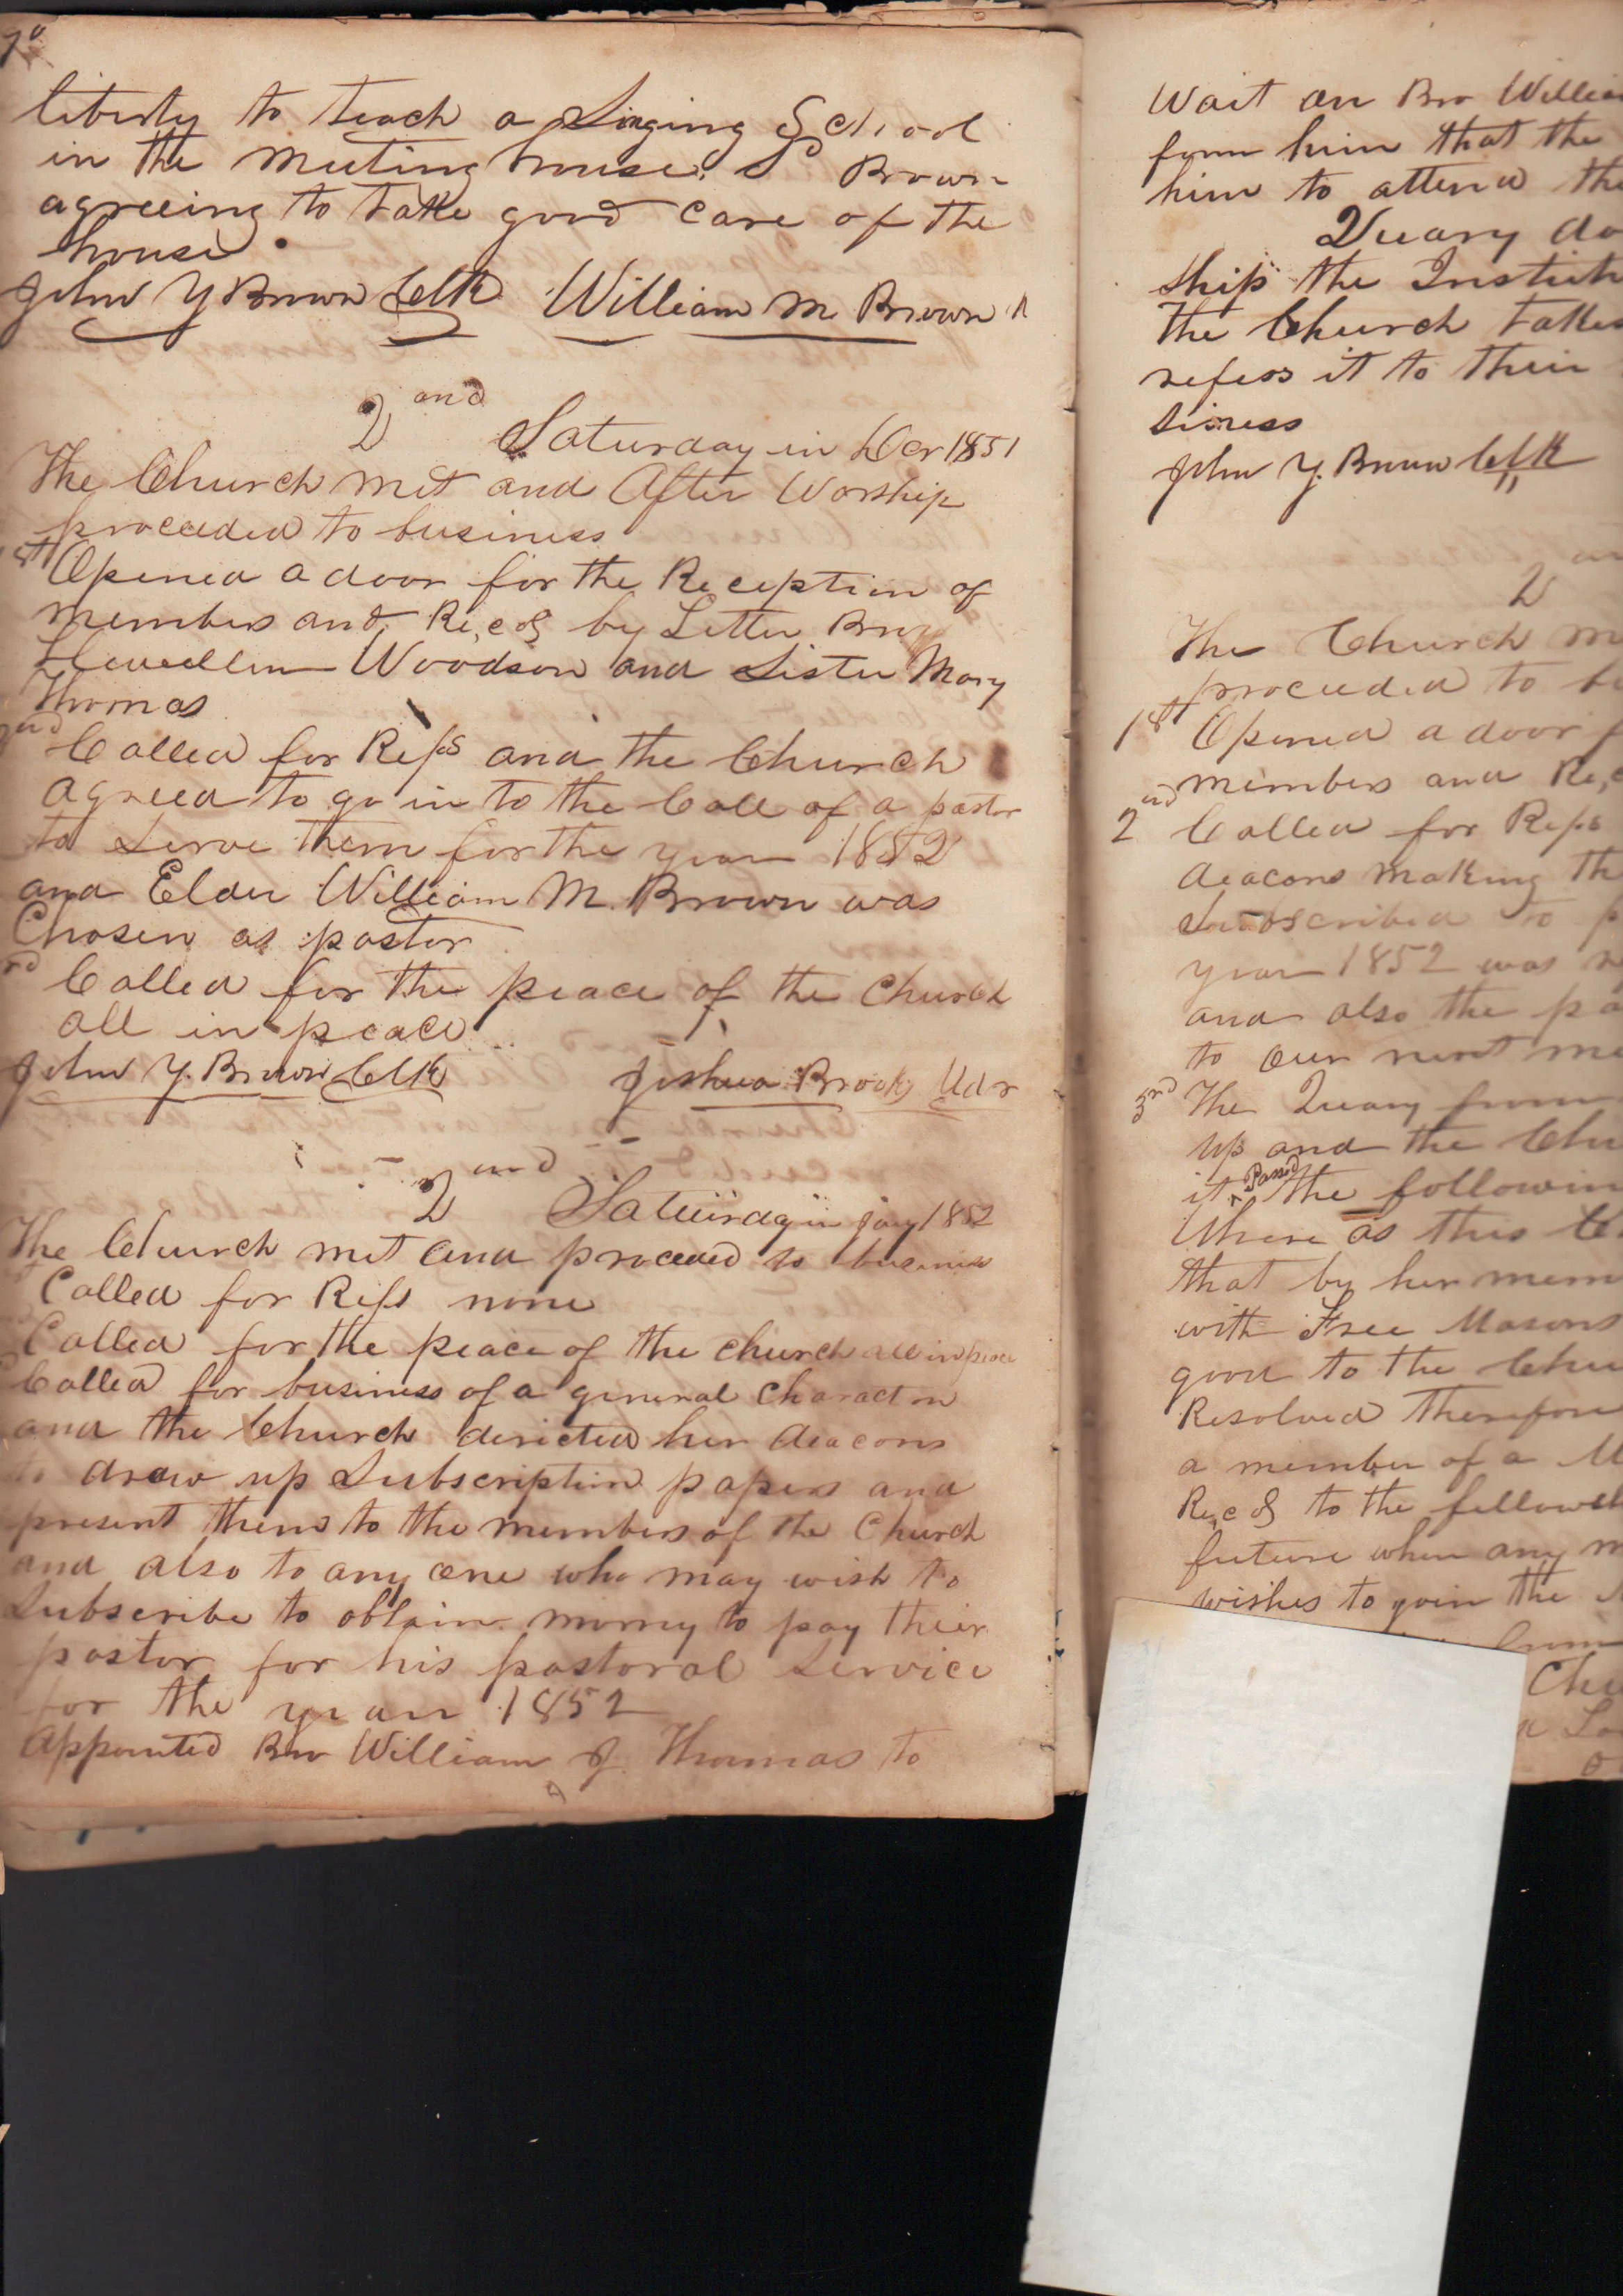 liberty to teach a Singing School
in the meeting house. S Brown
agreeing to take good care of the
house.
John Y Brown Clk William M Brown
2 and Saturday in Dcr 1851
The Church met and After Worship
proceeded to business
1st Opened a door for the Reception of
members and Recd by Letter Bro
Llewellin Woodson and Sister Mary
Thomas
2nd Called for Refs and the Church
agreed to go in to the Call of a pastor
to Serve them for the year 1852
and Elder William M. Brown was
Chosen as pastor
rd Called for the peace of the Church
all in peace
John Y. Brown Clk Joshua Brooks Mdr
2 and Saturday in Jany 1852
The Church met and proceeded to business
Called for Refs none
Called for the peace of the church all in peace
Called for business of a general Character
and the Church dericted her deacons
to draw up Subscription papers and
present them to the members of the Church
and also to any one who may wish to
Subscribe to obtain money to pay their
pastor for his pastoral Service
for the year 1852
Appointed Bro William J. Thomas to
Wait on Bro William
form him that the
him to attend the
Quary do
ship the Institut
The Church takes
refers it to their
siness
John Y. Brown Clk
2
The Church m
proceeded to b
1st Opened a door f
members and Rec
2nd Called for Refs
deacons making th
Subscribed to p
year 1852 was
and also the pa
to our next me
3rd The Quary from
up and the Chu
it Passed the followin
Where as this C
that by her mem
with Free Masons
good to the Chu
Resolved therefore
a member of a M
Recd to the fellowsh
future when any m
wishes to join the
from
Chu